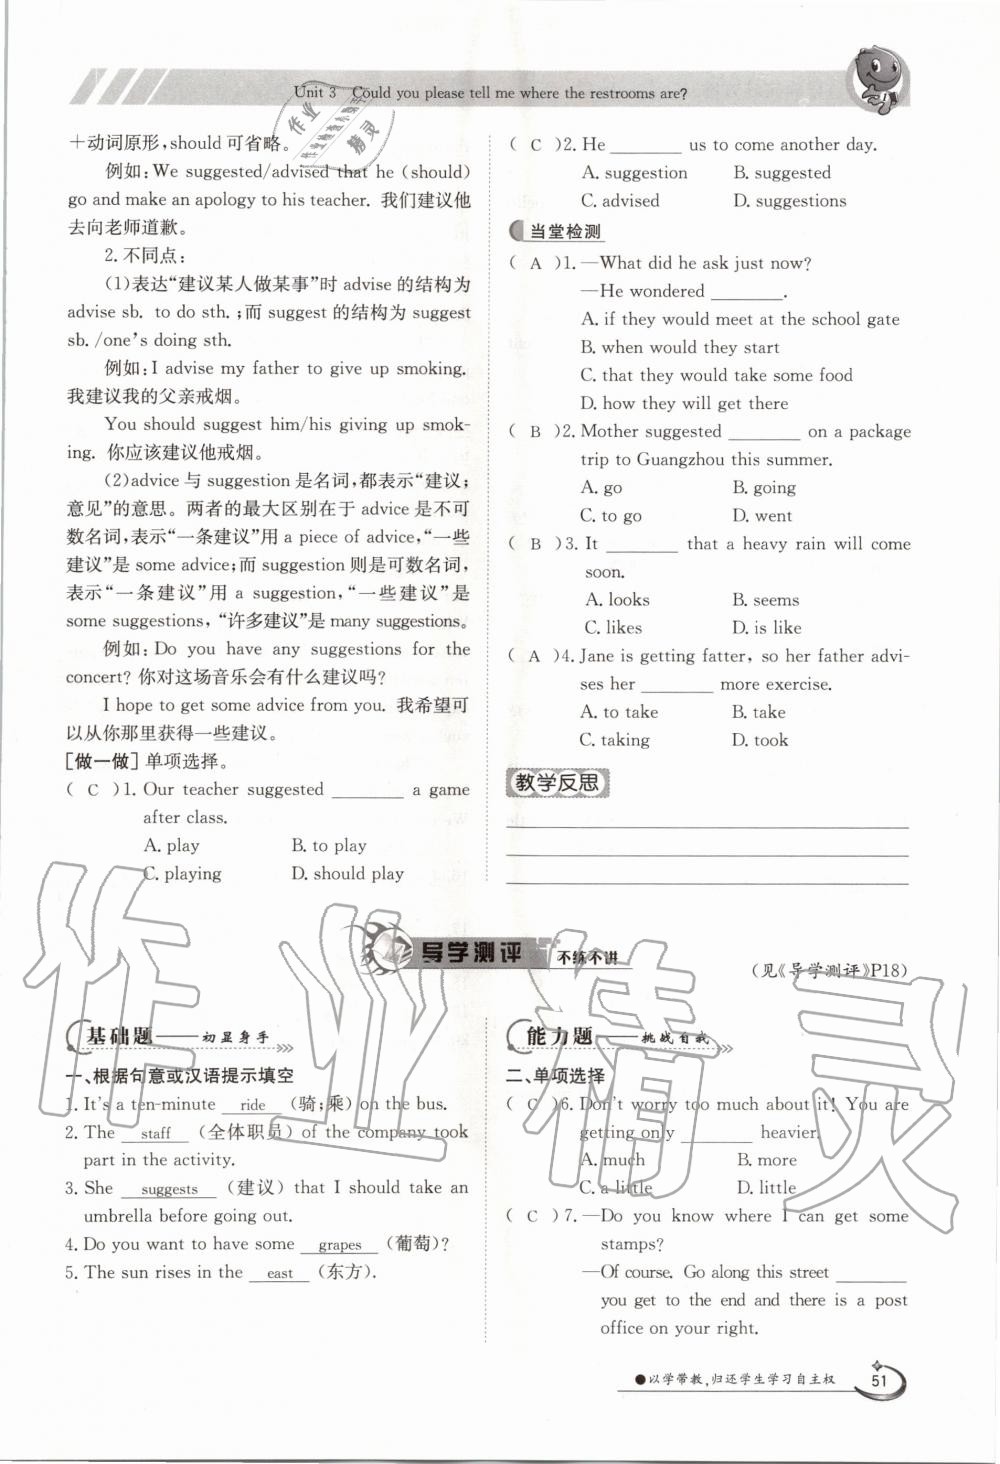 Unit 3 Could you please tell me where the restrooms are?
+动词原形,should 可省略。
例如:We suggested/advised that he (should)
go and make an apology to his teacher. 我们建议他
去向老师道歉。
2.不同点:
(1)表达“建议某人做某事”时 advise 的结构为
advise sb. to do sth.;而 suggest 的结构为 suggest
sb./one's doing sth.
例如:I advise my father to give up smoking.
我建议我的父亲戒烟。
You should suggest him/his giving up smok-
ing. 你应该建议他戒烟。
(2)advice 与 suggestion 是名词,都表示“建议;
意见”的意思。两者的最大区别在于 advice 是不可
数名词,表示“一条建议”用 a piece of advice,“一些
建议”是 some advice;而 suggestion 则是可数名词,
表示“一条建议”用 a suggestion,“一些建议”是
some suggestions,“许多建议”是 many suggestions。
例如:Do you have any suggestions for the
concert? 你对这场音乐会有什么建议吗?
I hope to get some advice from you. 我希望可
以从你那里获得一些建议。
[做一做]单项选择。
( C )1. Our teacher suggested ________ a game
after class.
A. play B. to play
C. playing D. should play
( C )2. He ________ us to come another day.
A. suggestion B. suggested
C. advised D. suggestions
当堂检测
( A )1. —What did he ask just now?
—He wondered ________.
A. if they would meet at the school gate
B. when would they start
C. that they would take some food
D. how they will get there
( B )2. Mother suggested ________ on a package
trip to Guangzhou this summer.
A. go B. going
C. to go D. went
( B )3. It ________ that a heavy rain will come
soon.
A. looks B. seems
C. likes D. is like
( A )4. Jane is getting fatter, so her father advi-
ses her ________ more exercise.
A. to take B. take
C. taking D. took
教学反思
导学测评 不练不讲
(见《导学测评》P18)
基础题——初显身手
一、根据句意或汉语提示填空
1. It's a ten-minute ride (骑;乘) on the bus.
2. The staff (全体职员) of the company took
part in the activity.
3. She suggests (建议) that I should take an
umbrella before going out.
4. Do you want to have some grapes (葡萄)?
5. The sun rises in the east (东方).
能力题——挑战自我
二、单项选择
( C )6. Don't worry too much about it! You are
getting only ________ heavier.
A. much B. more
C. a little D. little
( C )7. —Do you know where I can get some
stamps?
—Of course. Go along this street ________
you get to the end and there is a post
office on your right.
●以学带教,归还学生学习自主权
51
作业精灵